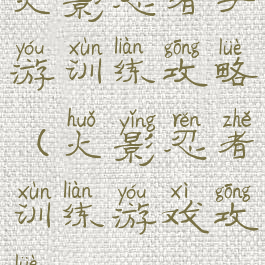 火影忍者手
yóu xùn liàn gōng lüè
游训练攻略
huǒ yǐng rěn zhě
(火影忍者
xùn liàn yóu xì gōng
训练游戏攻
lüè